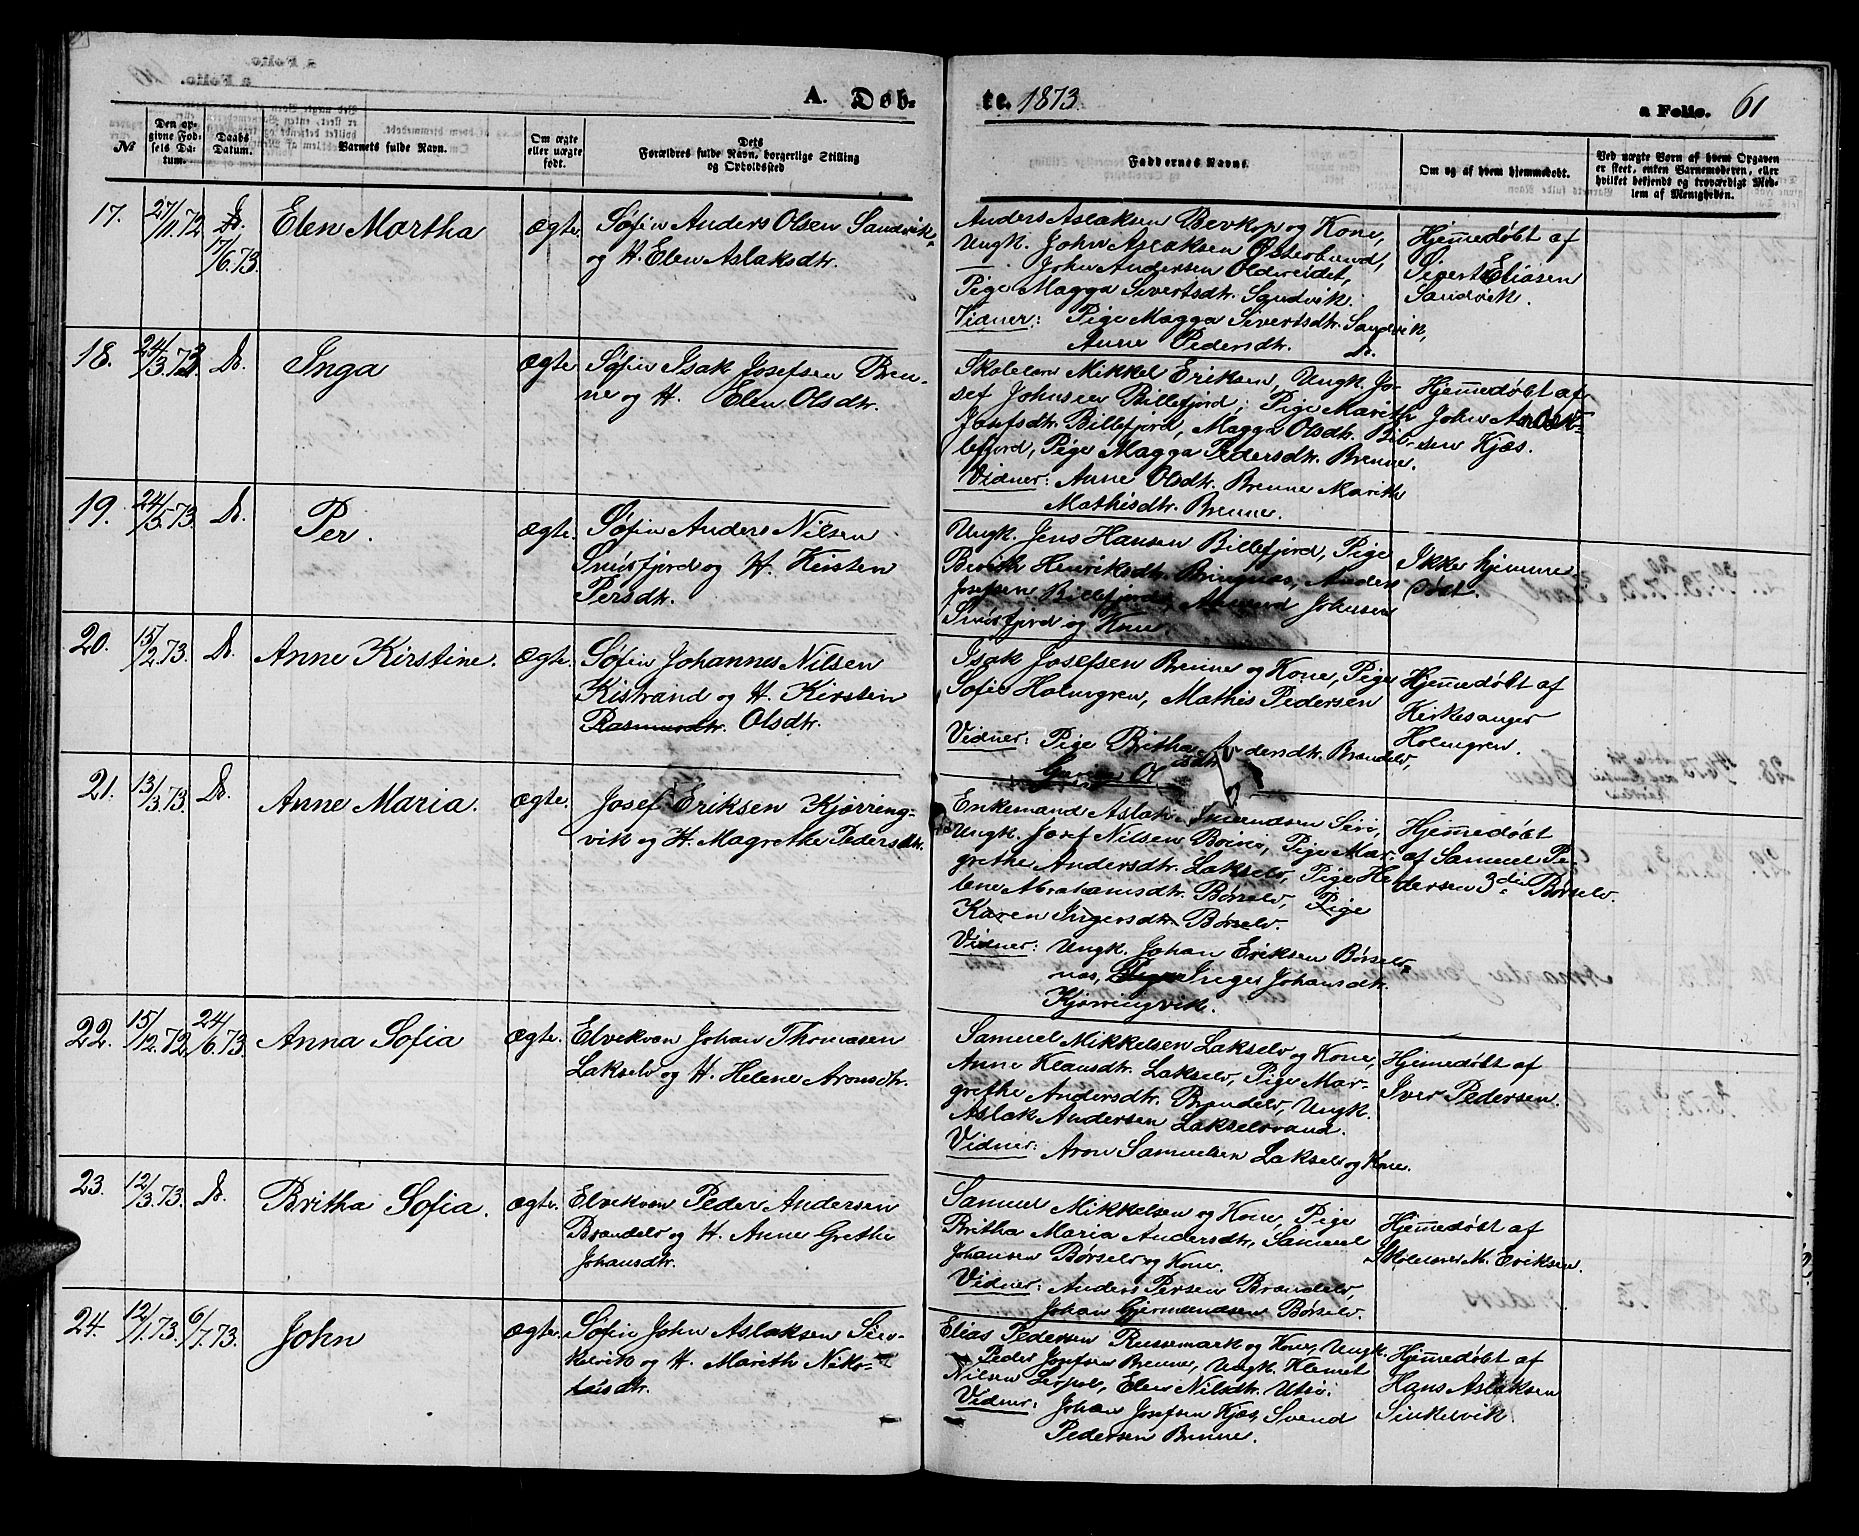 A. Døb- te. 1873. a Folio. 61
№
Den opgivne Fødsels Datum.
Daabs Datum.
Barnets fulde Navn.
Om ægte eller uægte født.
Dets Forældres fulde Navn, borgerlige Stilling og Opholdssted
Faddernes Navne.
Om og af hvem hjemmedøbt.
Ved uægte Børn af hvem Opgaven er skeet, enten Barnemoderen, eller hvilket bekjendt og troværdigt Medlem af Menigheden.
17.
27/11.72
D.
17/6.73.
Elen Martha
ægte.
Søfin Anders Olsen Sandvik
og H. Elen Aslaksdtr.
Anders Aslaksen Bevkop og Kone,
Ungk. John Aslaksen Østerbund,
— John Andersen Oldereidet,
Pige Magga Sivertsdtr. Sandvik.
Vidner: Pige Magga Sivertsdtr. Sandvik,
Anne Pedersdtr. D.
Hjemmedøbt af
Sivert Eliasen
Sandvik.
18.
24/3.73.
D.
Inga
Ægte
Søfin Isak Josefsen Bren-
ne og H. Elen Olsdtr.
Skolelær Mikkel Eriksen, Ungk. Jo-
sef Johnsen Billefjord; Pige Marith
Josefsdtr. Billefjord, Magga Olsdtr. Bil-
lefjord, Pige Magga Pedersdtr. Brenne.
Vidner: Anne Olsdtr. Brenne Marith
Mathisdtr. Brenne.
Hjemmedøbt af
John
sen Kjæs.
19.
24/5.73.
D.
Per.
Ægte.
Søfin Anders Nilsen
Smørfjord og H. Kirsten
Persdtr.
Ungk. Jens Hansen Billefjord, Pige
Berith Henriksdtr. Bringnæs, Anders
Josefsen Billefjord, Amund Johnsen
Smørfjord og Kone.
Ikke hjemme-
døbt.
20.
15/2.73.
D.
Anne Kirstine.
Ægte.
Søfin Johannes Nilsen
Kistrand og H. Kirsten
Rasmusdtr. Olsdtr.
Isak Josefsen Brenne og Kone, Pige
Sofie Holmgren, Mathis Pedersen
Vidner: Pige Britha Andersdtr. Brandelv,
Hjemmedøbt af
Kirkesanger
Holmgren.
21.
13/3.73.
D.
Anne Maria.
ægte.
Josef Eriksen Kjørring-
vik og H. Magrethe Pedersdtr.
Enkemand Aslak Amundsen Seiø,
Ungk. Josef Nilsen Børsø, Pige Mar-
grethe Andersdtr. Lakselv, Pige He-
lene Abrahamsdtr. Børselv, Pige
Karen Ingersdtr. Børselv.
Vidner: Ungk. Johan Eriksen Børselv-
næs, Pige Inger Johansdtr.
Kjørringvik.
Hjemmedøbt
af Samuel Pe-
dersen 3die Børselv.
22.
15/12.72
24/6.73.
Anna Sofia
Ægte.
Elvekvæn Johan Thomasen
Lakselv og H. Helene Aronsdtr.
Samuel Mikkelsen Lakselv og Kone,
Anne Klausdtr. Lakselv, Pige Mar-
grethe Andersdtr. Brandelv, Ungk.
Aslak Andersen Lakselvvand.
Vidner: Aron Samuelsen Lakselv og Kone.
Hjemmedøbt af
Iver Pedersen.
23.
12/3.73.
D.
Britha Sofia.
ægte.
Elvekvæn Peder Andersen
Brandelv og H. Anne Grethe
Johansdtr.
Samuel Mikkelsen og Kone, Pige
Britha Maria Andersdtr, Samuel
Johansen Børselv og Kone.
Vidner: Anders Persen Brandelv,
Johan Gjermundsen Børselv.
Hjemmedøbt af
Skolelærer M. Eriksen.
24.
12/1.73.
6/7.73.
John
Ægte.
Søfin John Aslaksen Sin-
kelvik og H. Marith Niko-
laisdtr.
Elias Pedersen Russemark og Kone, Ungk.
Peder Josefsen Brenne, Ungk. Klemet
Nilsen Leirpol, Elen Nilsdtr.
Vidner: Johan Josefsen Kjæs, Svend
Pedersen Brenne.
Hjemmedøbt af
Hans Aslaksen
Sinkelvik